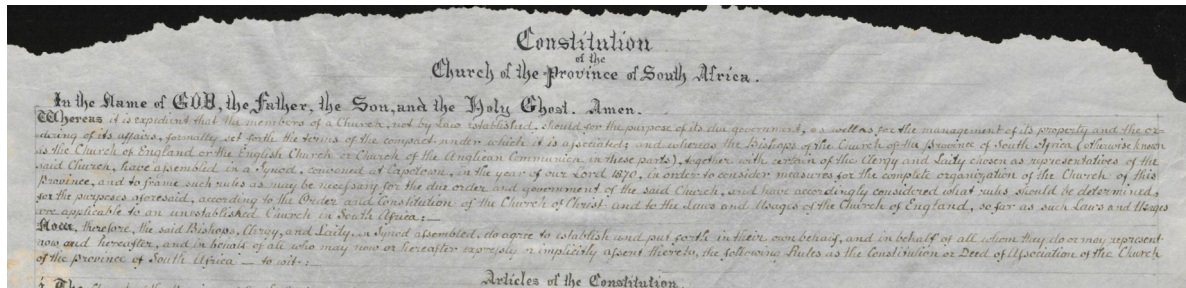 Constitution
of the
Church of the Province of South Africa.
In the Name of GOD, the Father, the Son, and the Holy Ghost. Amen.
Whereas it is expedient that the members of a Church, not by Law established, should for the purpose of its due government, as well as for the management of its property and the or-
dering of its affairs, formally set forth the terms of the compact under which it is associated; and whereas the Bishops of the Church of the Province of South Africa (otherwise known
as the Church of England or the English Church or Church of the Anglican Communion in these parts), together with certain of the Clergy and Laity chosen as representatives of the
said Church, have assembled in a Synod, convened at Capetown, in the year of our Lord 1870, in order to consider measures for the complete organization of the Church of this
Province, and to frame such rules as may be necessary for the due order and government of the said Church, and have accordingly considered what rules should be determined,
for the purposes aforesaid, according to the Order and Constitution of the Church of Christ and to the Laws and Usages of the Church of England, so far as such Laws and Usages
are applicable to an unestablished Church in South Africa:—
Now, therefore, the said Bishops, Clergy, and Laity, in Synod assembled, do agree to establish and put forth in their own behalf, and in behalf of all whom they do or may represent
now and hereafter, and in behalf of all who may now or hereafter expressly or implicitly assent thereto, the following Rules as the Constitution or Deed of Association of the Church
of the Province of South Africa — to wit:—
Articles of the Constitution.
1. The